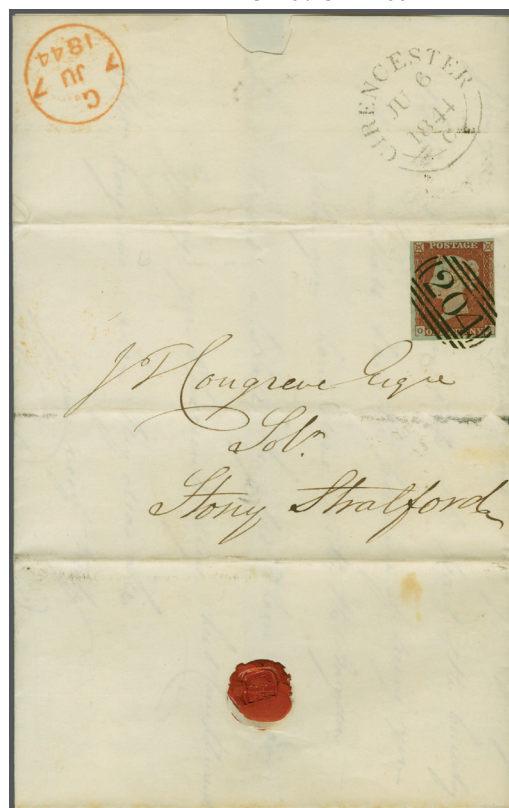 G
JU 7
1844
CIRENCESTER
JU 6
1844
C
POSTAGE
204
O
J T Congreve Esqre
Solr.
Stony Stratford